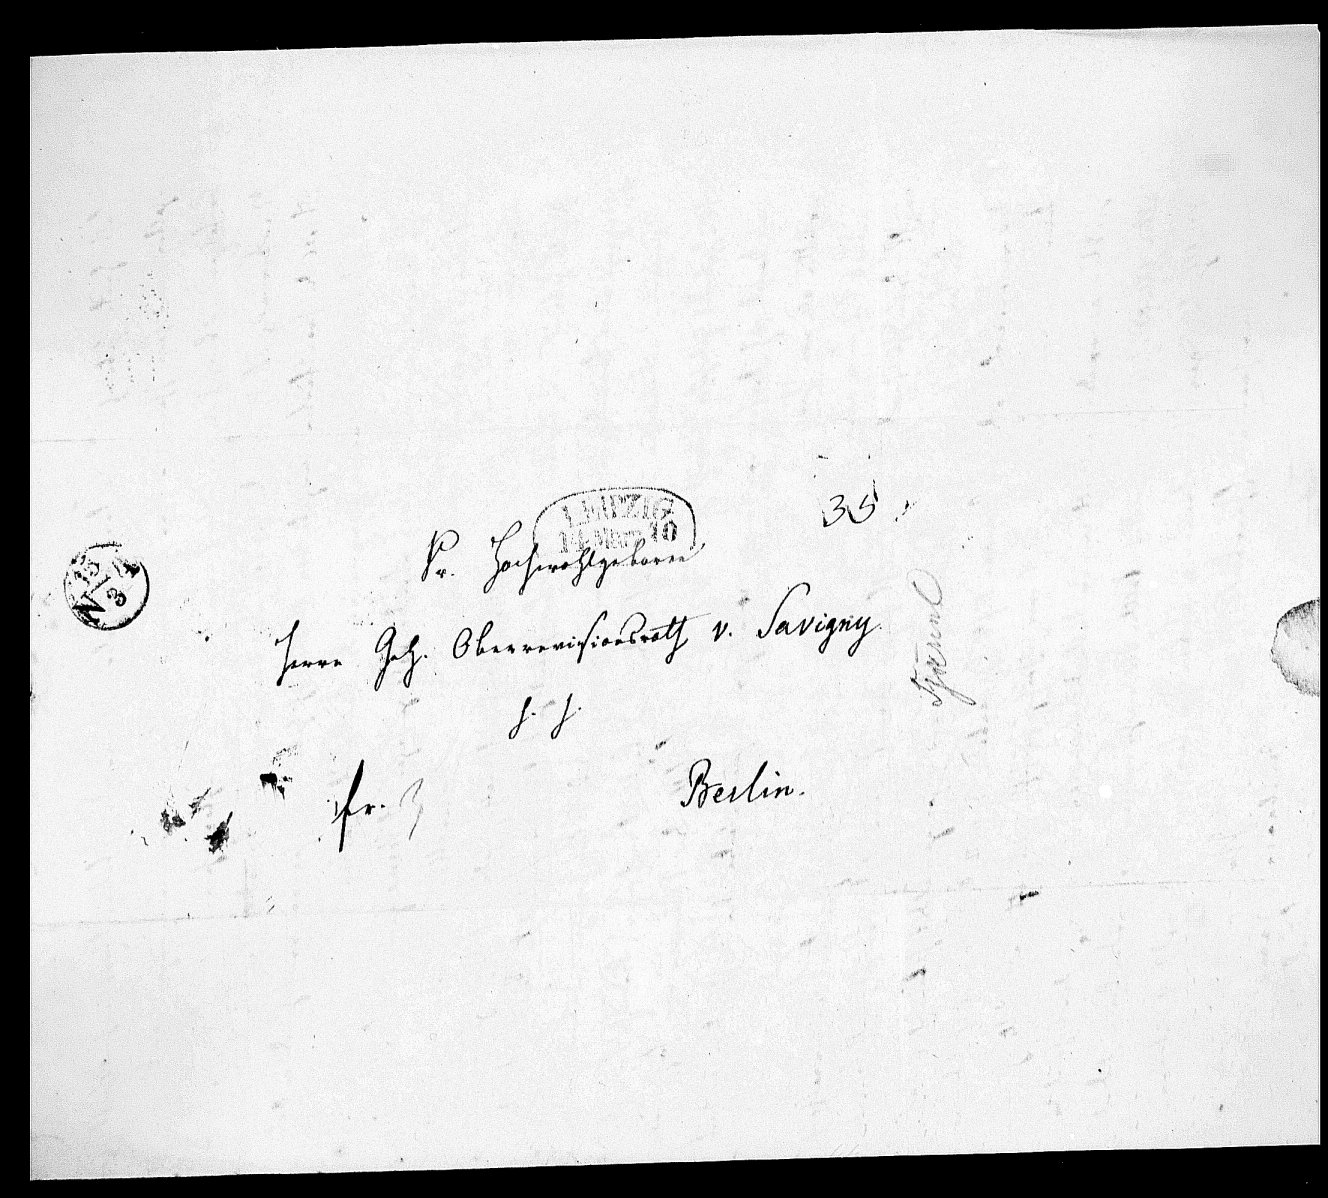 35
LEIPZIG
14 März 40
Sr. Hochwohlgeboren
15 / 3
N 4
Herrn Geh. Oberrevisionsrath v. Savigny
p. p.
fr. 3
Berlin.